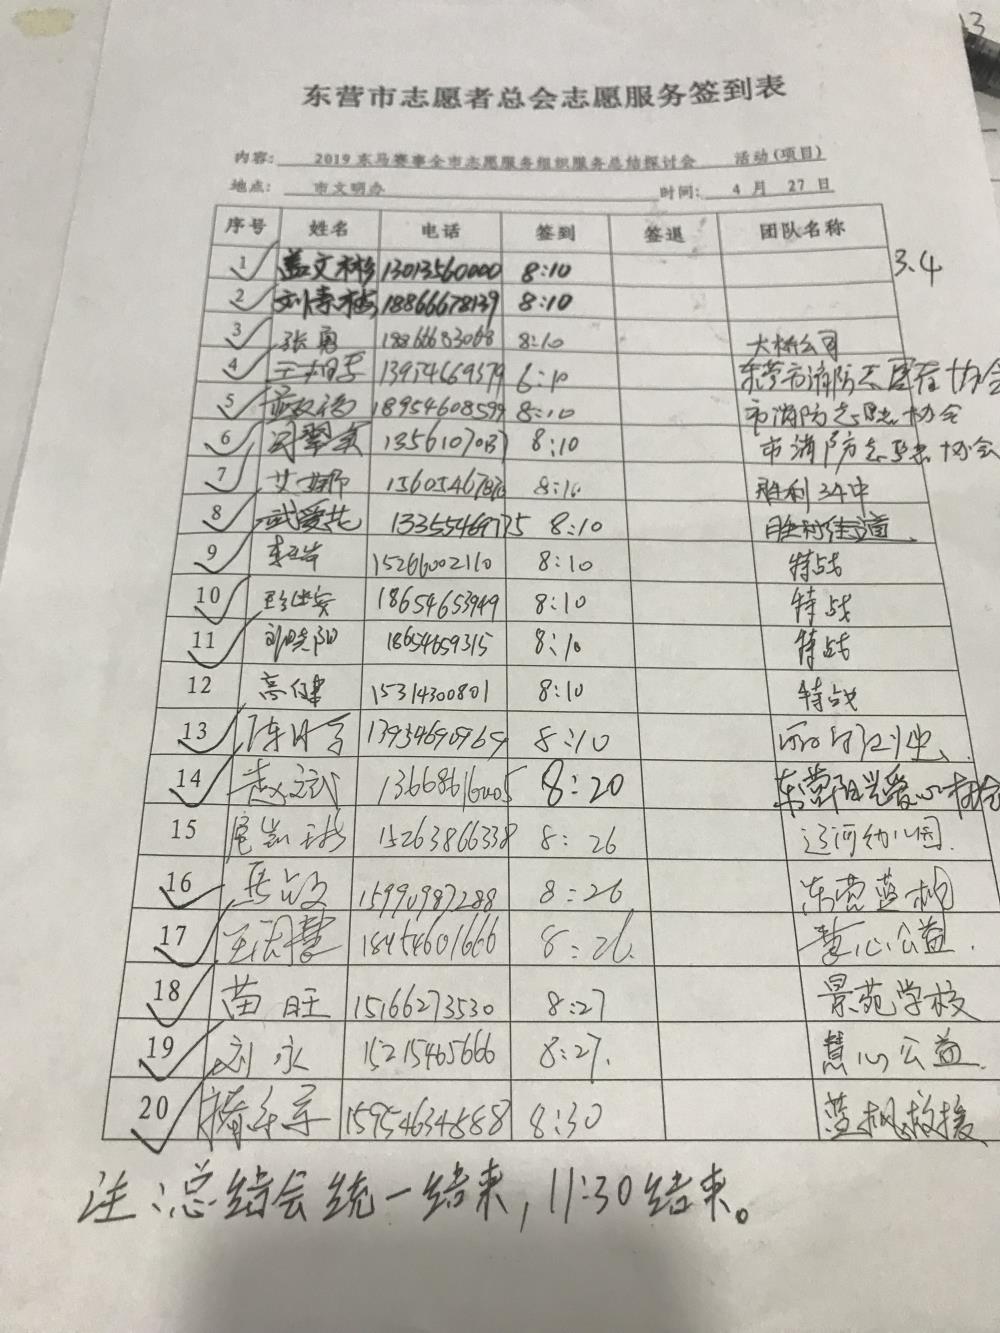 13
东营市志愿者总会志愿服务签到表
内容: 2019东马赛事全市志愿服务组织服务总结探讨会 活动(项目)
地点: 市文明办 时间: 4 月 27 日
序号 姓名 电话 签到 签退 团队名称
1 盖文彬 13013560000 8:10
3.4
2 刘春梅 18866678139 8:10
3 张勇 18266683068 8:10 大桥公司
4 8:10 东营市消防志愿者协会
5 18954608599 8:10 市消防志愿协会
6 8:10 市消防志愿协会
7 艾娜 8:10 胜利34中
8 武爱花 13355469775 8:10 胜利街道
9 15266002110 8:10 特战
10 18654653949 8:10 特战
11 邓晓阳 18654659315 8:10 特战
12 高健 15314300801 8:10 特战
13 8:10
14 赵斌 8:20
15 15263866338 8:26 辽河幼儿园.
16 马敏 15990987288 8:26 东营蓝枫
17 18454601666 8:26. 慧心公益.
18 苗旺 15166273530 8:27 景苑学校
19 刘永 15215465666 8:27. 慧心公益.
20 8:30 蓝枫救援
注:总结会统一结束,11:30结束。